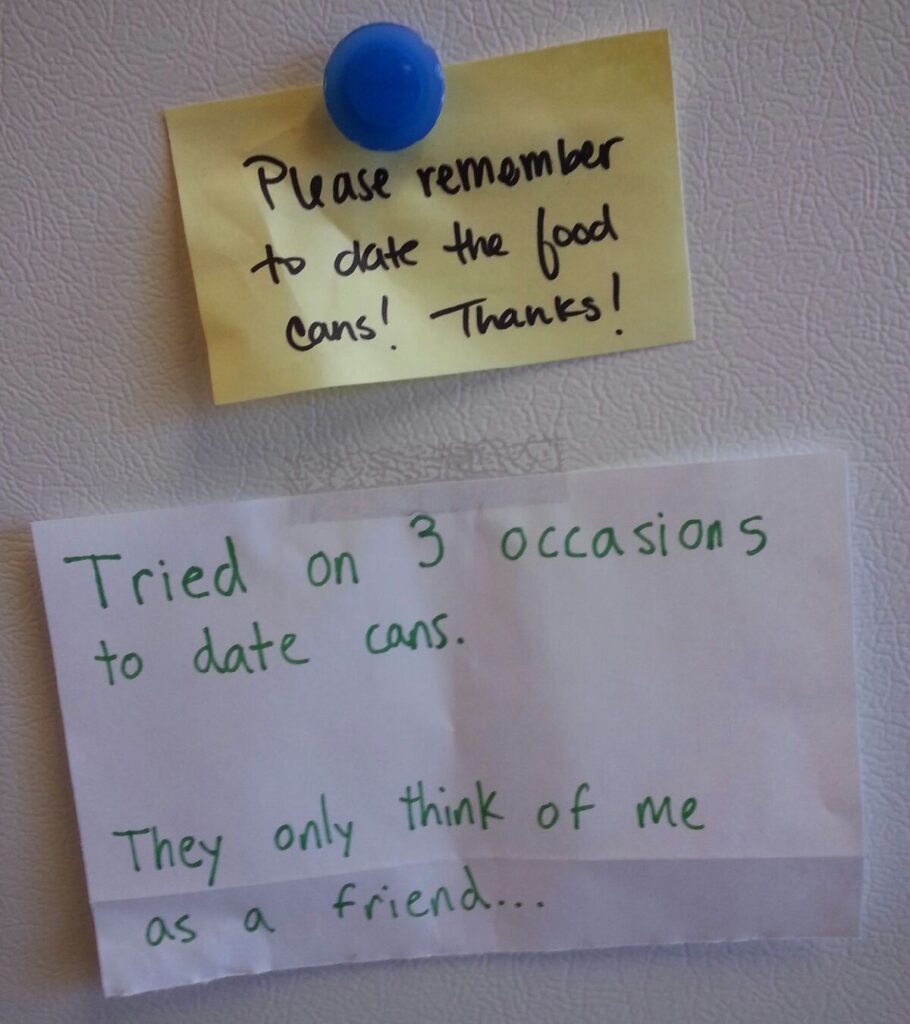 Please remember
to date the food
cans! Thanks!
Tried on 3 occasions
to date cans.
They only think of me
as a friend...